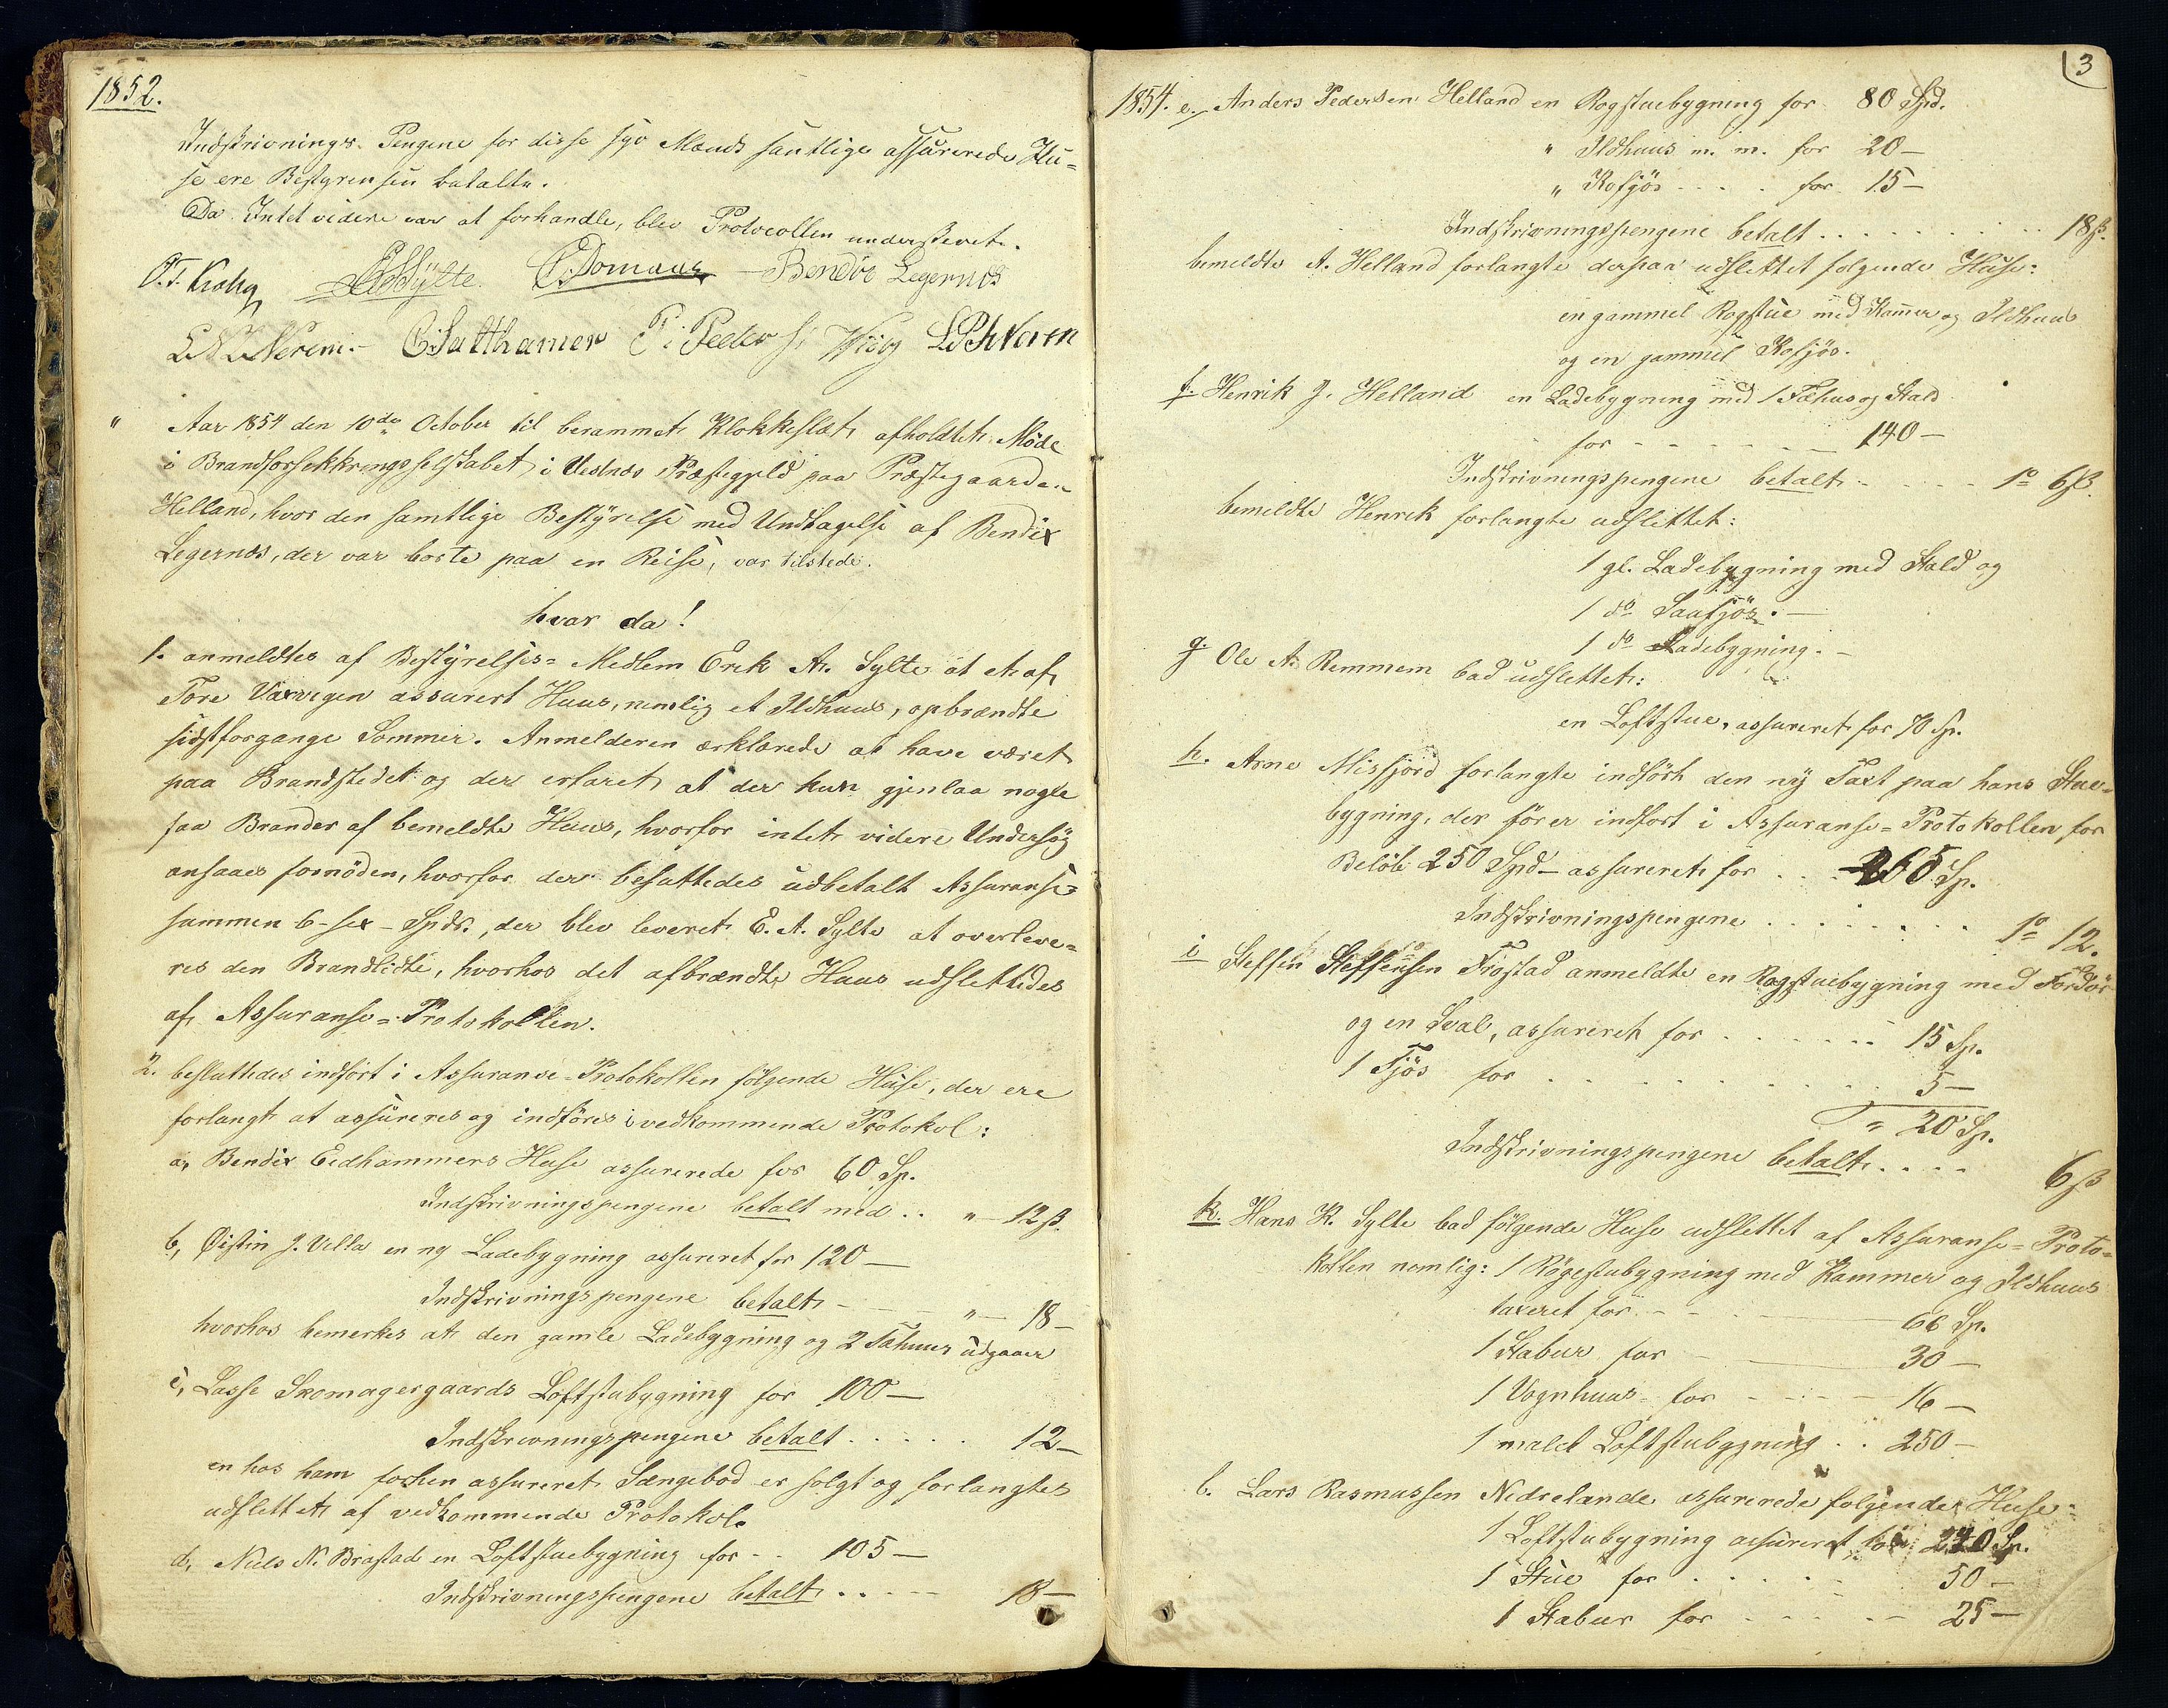 1852.
Indskrivnings-Pengene for disse syv Mænds samtlige assurerede Hu=
se ere Bestyrelsen betalte.
Da Intet videre var at forhandle, blev Protocollen underskrevet.
E A Sylte. Domaas Bendix Legernes
L N Nerem. E. Salthamer P. Peders. Wiig L P Neren
" Aar 1854 den 10de October til berammet Klokkeslæt afholdtet Møde
i Brandforsekkringsselskabet i Vestnæs Præstegjeld paa Præstegaarden
Helland, hvor den samtlige Bestyrelse med Undtagelse af Bendix
Legernes, der var borte paa en Reise, var tilstede.
hvor da!
1. anmeldtes af Bestyrelses=Medlem Erik A. Sylte at et af
Tore Varvigen assurert Huus, nemlig et Ildhuus, opbrændte
sidstforgange Sommer. Anmelderen erklærede at have været
paa Brandstedet og der erfaret at der kun gjenlaa nogle
faa Brander af bemeldte Huus, hvorfor intet videre Undersøg
ansaaes fornöden, hvorfor der besluttedes udbetalt Assuranse=
summen 6-sex-Spdr., der blev leveret E. A. Sylte at overleve=
res den Brandlidte, hvorhos det afbrændte Huus udslettedes
af Assuranse=Protokollen.
2. besluttedes indfört i Assuranse-Protokollen fölgende Huse, der ere
forlangt at assureres og indföres i vedkommende Protokol:
a, Bendix Eidhammers Huse assurerede for 60 Sp.
Indskrivningspengene betalt med .. " - 12 ß.
b, Øistin J. Villa en ny Ladebygning assureret for 120 —
Indskrivningspengene betalt - - - " — 18 —
hvorhos bemerkes at den gamle Ladebygning og 2 Fæhuus udgaaer
c, Lasse Skomagergaards Loftstubygning for 100 —
Indskrivningspengene betalt . . . . . 12 —
en hos ham forhen assureret Sængebod er solgt og forlangtes
udslettet af vedkommende Protokol.
d, Niels N. Brastad en Loftstuebygning for - . 105 —
Indskrivningspengene betalt . . — — 18 —
3
1854. e. Anders Pedersen Helland en Rogstuebygning for 80 Spd.
" Ildhuus m. m. for 20 —
" Kofjös - - . . for 15 —
Indskrivningspengene betalt . . . . . . . . . . 18 ß.
bemeldte A. Helland forlangte derpaa udslettet følgende Huse:
en gammel Rogstue med Kammer og Ildhuus
og en gammel Kofjös.
f. Henrik J. Helland en Ladebygning med 1 Fæhus og Stald
for - - - - - — 140 —
Indskrivningspengene betalt - - - - - 1 o 6 ß.
bemeldte Henrik forlangte udslettet:
1 gl. Ladebygning med Stald og
1 do Saufjös. —
1 do Ladebygning. —
g. Ole A. Remmem bad udslettet:
en Loftstue, assureret for 70 Sp.
h. Arne Misfjord forlangte indfört den ny Taxt paa hans Stue=
bygning, der förer indfört i Assuranse=Protokollen for
Beløb 250 Spd — assureret for . . . 265 Sp.
Indskrivningspengene . . . . . . . . 1 o 12.
i Steffen Steffensen Frostad anmeldte en Rogstuebygning med Fordør
og en Sval, assureret for . . . . . . - 15 Sp.
1 Fjös for . . . . . . . . . . . . 5 —
= 20 Sp.
Indskrivningspengene betalt . . . . 6 ß
k. Hans K. Sylte bad fölgende Huse udslettet af Assuranse=Proto=
kollen nemlig: 1 Rögestubygning med Kammer og Ildhuus
taxeret for - - - — 66 Sp.
1 Stabur for - — 30 —
1 Vognhuus for - - - — 16 —
1 malet Loftstubygning . . 250 —
l. Lars Rasmussen Nedrelande assurerede følgende Huse:
1 Loftstubygning assureret for 240 Sp.
1 Stue for . . . . - 50 —
1 Stabur for - - - - — 25 —